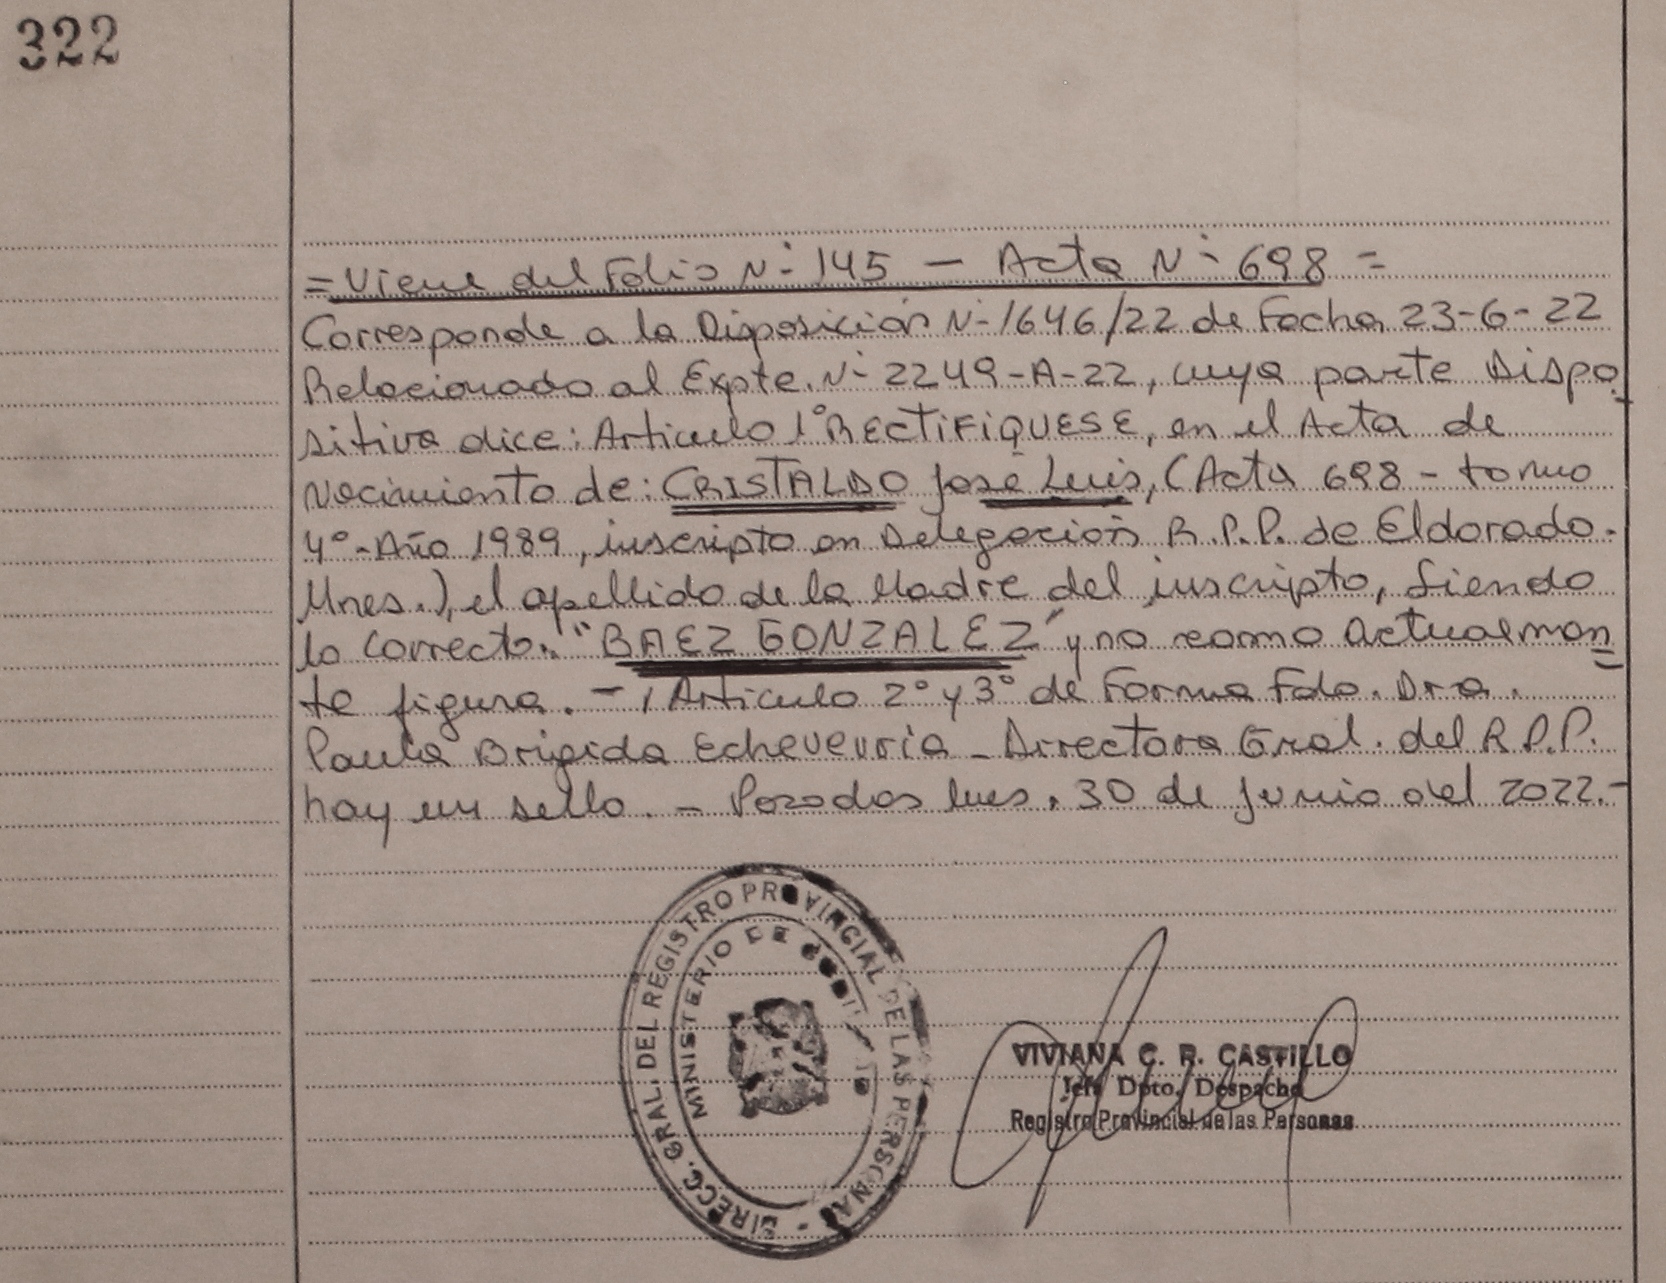 322
= Viene del Folio N° 145 — Acta N° 698 =
Corresponde a la Disposición N° 1646/22 de Fecha 23-6-22
Relacionado al Expte. N° 2249-A-22, cuya parte Dispo
sitiva dice: Articulo 1° RECTIFIQUESE, en el Acta de
Nacimiento de: CRISTALDO José Luis, (Acta 698 - tomo
4° - Año 1989, inscripto en Delegación R.P.P. de Eldorado.
Mnes.), el apellido de la Madre del inscripto, Siendo
lo correcto: "BAEZ GONZALEZ" y no como actualmen
te figura. - Articulo 2° y 3° de Forma Fdo. Dra.
Paula Brigida Echeverría - Directora Gral. del R.P.P.
hay un sello. - Posadas Mnes. 30 de Junio del 2022.-
DIRECC. GRAL. DEL REGISTRO PROVINCIAL DE LAS PERSONAS
MINISTERIO DE GOBIERNO
VIVIANA C. R. CASTILLO
Jefa Dpto. Despacho
Registro Provincial de las Personas